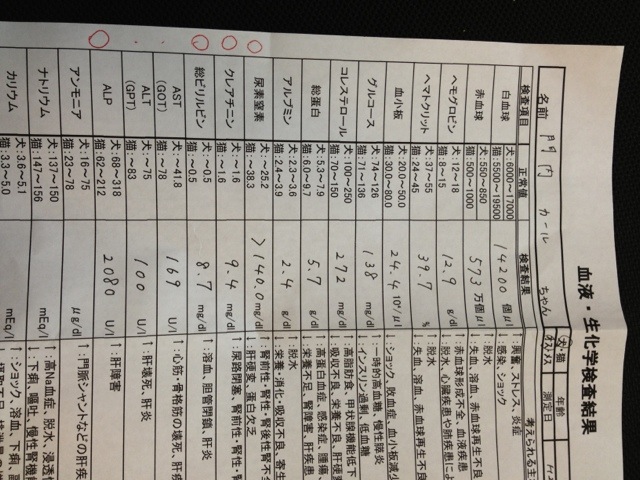 血液・生化学検査結果
名前 門内 カール ちゃん
犬・猫
年齢
測定日
検査項目 正常値 検査結果 考えられる主
白血球 犬:6000~17000 猫:5500~19500 14200 個μl ↑:興奮、ストレス、炎症 ↓:感染・ショック
赤血球 犬:550~850 猫:500~1000 573 万個μl ↑:脱水 ↓:失血、溶血、赤血球再生不良
ヘモグロビン 犬:12~18 猫:8~15 12.9 g/dl ↓:赤血球形成不全、血液疾患
ヘマトクリット 犬:37~55 猫:24~45 39.7 % ↑:脱水、心臓疾患や肺疾患によ ↓:失血、溶血、赤血球再生不良
血小板 犬:20.0~50.0 猫:30.0~80.0 24.4 10⁴/μl ↓:ショック、敗血症、血小板減少
グルコース 犬:74~126 猫:71~136 138 mg/dl ↑:一時的高血糖、慢性膵炎 ↓:インスリン過剰、低血糖
コレステロール 犬:100~250 猫:70~150 272 mg/dl ↑:高脂肪食、甲状腺機能低下 ↓:吸収不良、栄養不良、肝硬変
総蛋白 犬:5.3~7.9 猫:6.0~9.7 5.7 g/dl ↑:高蛋白血症、感染症、腫瘍、 ↓:栄養不足、腎障害、肝疾患
アルブミン 犬:2.3~3.6 猫:2.4~3.9 2.4 g/dl ↑:脱水 ↓:栄養・消化・吸収不良、寄生
尿素窒素 犬:~25.2 猫:~38.3 >140.0 mg/dl ↑:腎前性・腎性・腎後性腎不全 ↓:肝硬変、蛋白欠乏
クレアチニン 犬:~1.6 猫:~1.6 9.4 mg/dl ↑:尿路閉塞、腎前性・腎性・腎
総ビリルビン 犬:~0.5 猫:~0.5 8.7 mg/dl ↑:溶血、胆管閉鎖、肝炎
AST (GOT) 犬:~41.8 猫:~78 169 U/l ↑:心筋・骨格筋の壊死、肝疾
ALT (GPT) 犬:~75 猫:~83 100 U/l ↑:肝壊死、肝炎
ALP 犬:68~318 猫:62~212 2080 U/l ↑:肝障害
アンモニア 犬:16~75 猫:23~78 μg/dl ↑:門脈シャントなどの肝疾
ナトリウム 犬:137~150 猫:147~156 mEq/l ↑:高Na血症、脱水、浸透性 ↓:下痢、嘔吐、慢性腎機能
カリウム 犬:3.6~5.1 猫:3.3~5.0 mEq/l ↑:ショック、溶血、下痢、副